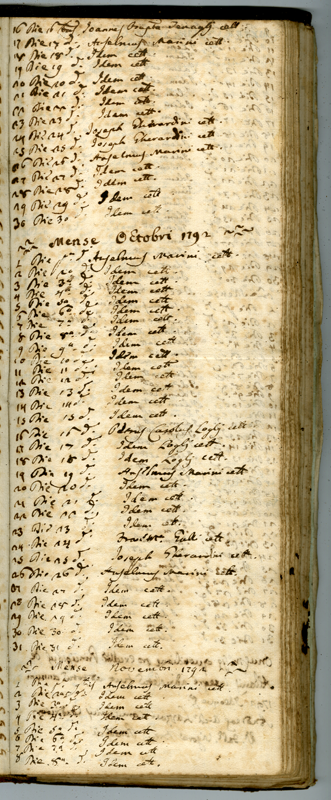 16 Die 16 Joannes
17 Die 17 d. Anselmus Marini cett.
18 Die 18 d. Idem cett.
19 Die 19 d. Idem cett.
20 Die 20 d. Idem cett.
21 Die 21 d. Idem cett.
22 Die 22 d. Idem cett.
23 Die 23 d. Idem cett.
24 Die 24 d. Joseph Gherardini cett.
25 Die 25 d. Joseph Gherardini cett.
26 Die 26 d. Anselmus Marini cett.
27 Die 27 d. Idem cett.
28 Die 28 d. Idem cett
29 Die 29 d. Idem cett
30 Die 30 Idem cett
Mense Octobri 1792
1 Die p.a d. Anselmus Marini cett.
2 Die 2a d. Idem cett
3 Die 3a d. Idem cett
4 Die 4a d. Idem cett
5 Die 5a d. Idem cett
6 Die 6a d. Idem cett
7 Die 7a d. Idem cett.
8 Die 8a d. Idem cett
9 Die 9a d. Idem cett
10 Die 10 d. Idem cett.
11 Die 11 d. Idem cett
12 Die 12 d. Idem cett
13 Die 13 d. Idem cett
14 Die 14 d. Idem cett
15 Die 15 d. Idem cett
16 Die 16 d. Petrus Carolus cett
17 Die 17 d. Idem cett
18 Die 18 d. Idem cett
19 Die 19 d. Anselmus Marini cett
20 Die 20 d. Idem cett.
21 Die 21 d. Idem cett.
22 Die 22 Idem cett.
23 Die 23 Idem cett
24 Die 24 d. cett
25 Die 25 d. Joseph Gherardini cett.
26 Die 26 d. Anselmus Marini cett.
27 Die 27 d. Idem cett.
28 Die 28 d. Idem cett
29 Die 29 d. Idem cett
30 Die 30 d. Idem cett
31 Die 31 d. Idem cett.
Mense Novembri 1792
Anselmus Marini cett
2 Die 2a d. Idem cett
3 Die 3a Idem cett
4 Die 4a d. Idem cett
5 Die 5a d. Idem cett.
6 Die 6a d. Idem cett
7 Die 7a d. Idem cett
8 Die 8a d. Idem cett.